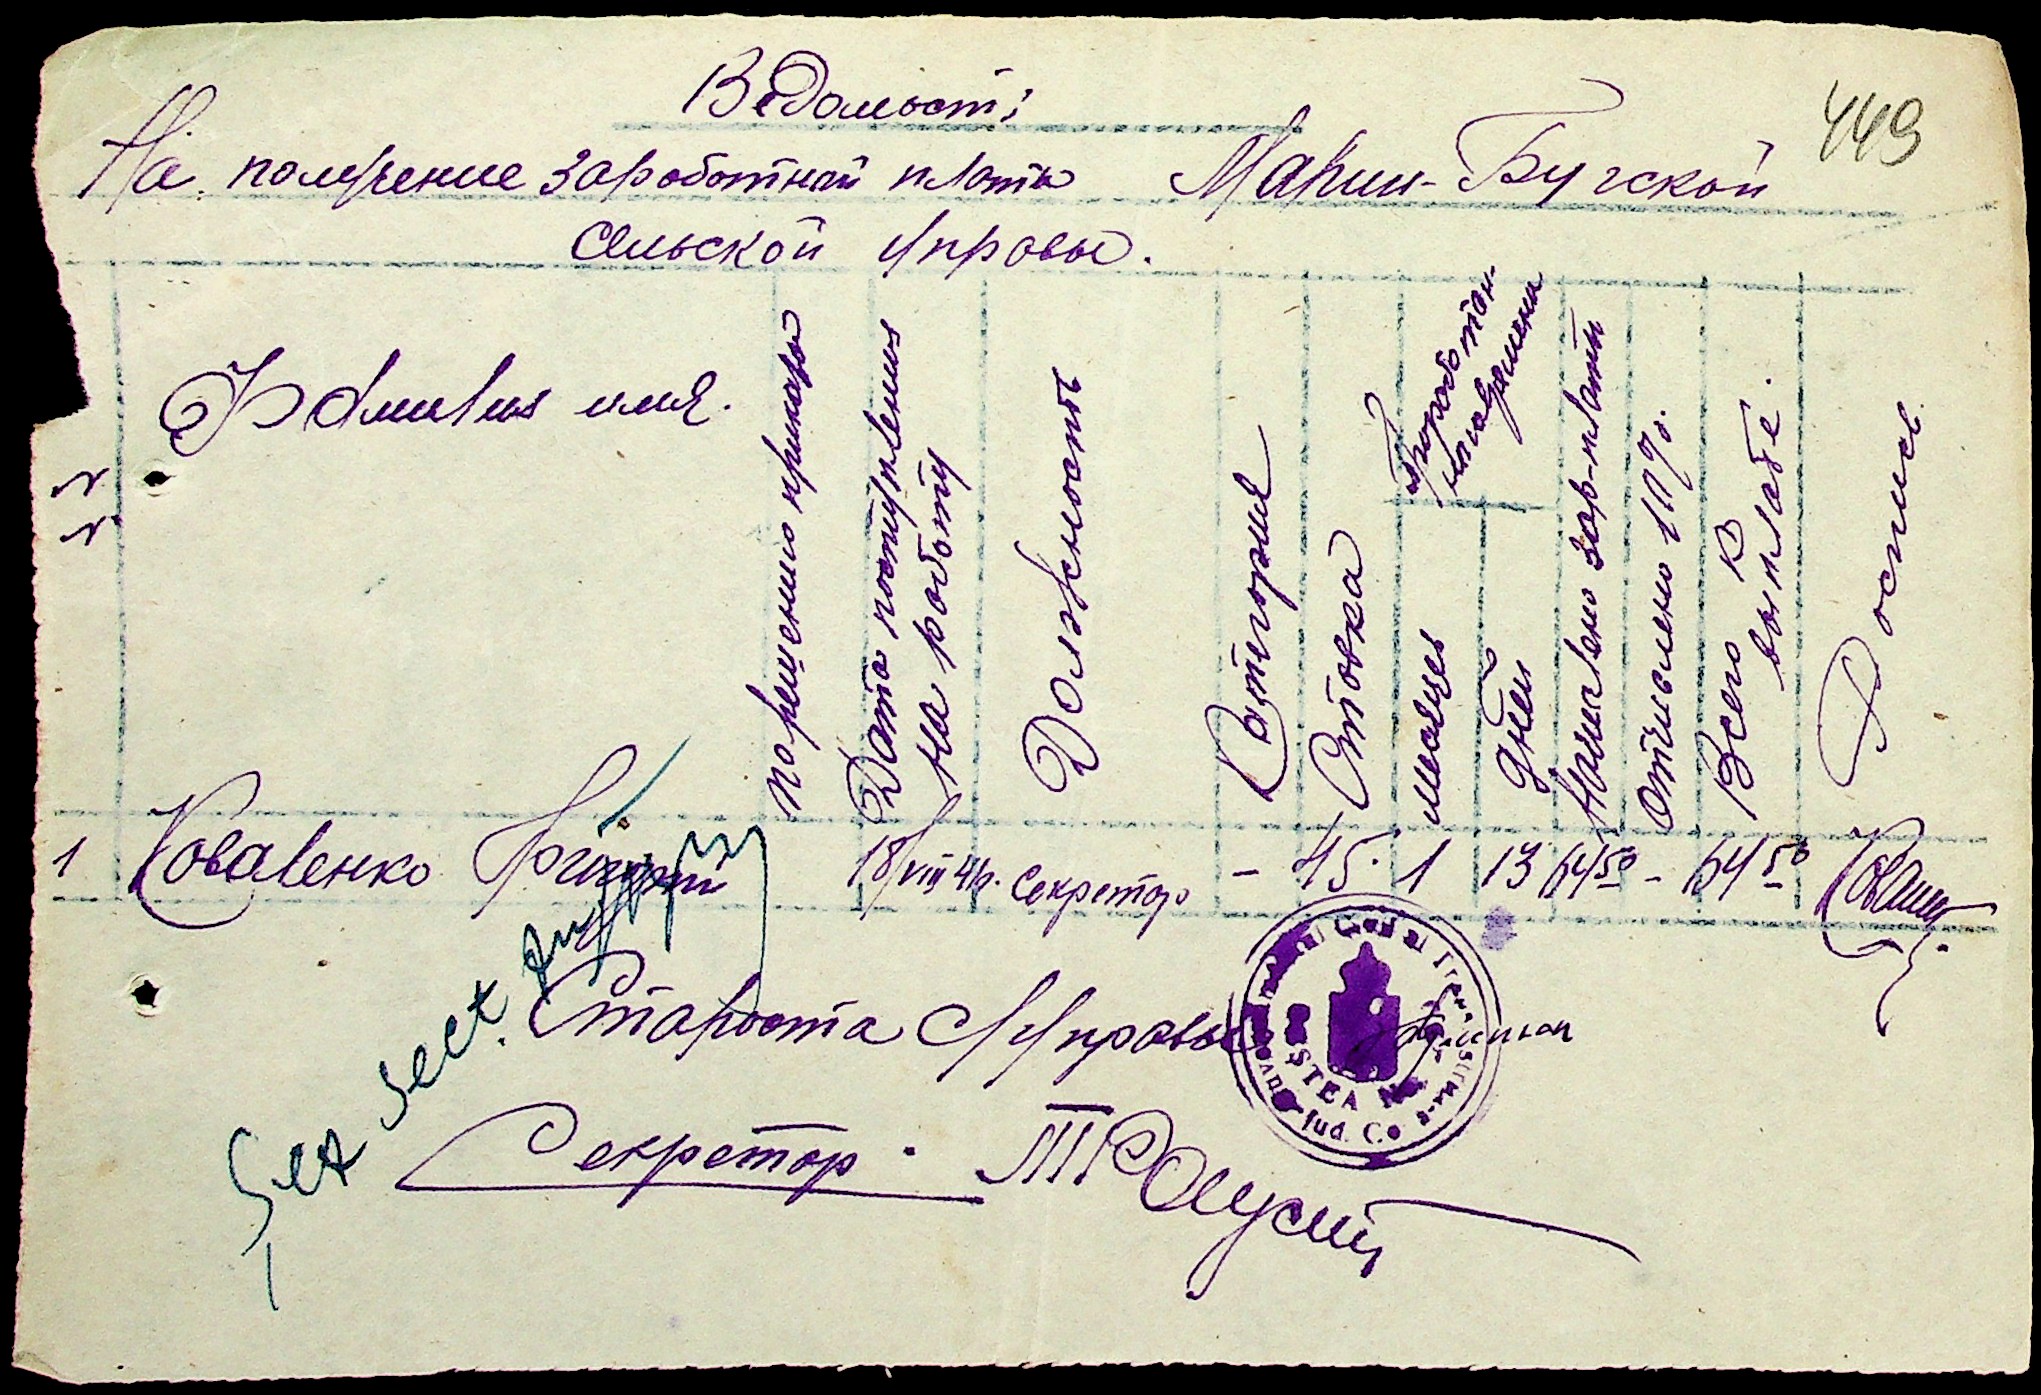 449
Ведомость
На получение заработной платы Марии-Бугской
сельской управы.
Фамилия имя.
по решению примарии
Дата поступления
на работу
Должность
Категория
Ставка
Проработан-
месяцев
дней
Начислено зар-платы
Отчислено 10%.
Всего к
выплате.
Роспись
1 Коваленко Григорий 18/VIII 41г. секретарь – 45. 1 13 64 50 – 64 50
Староста С/Управы
Jud.
Секретарь.